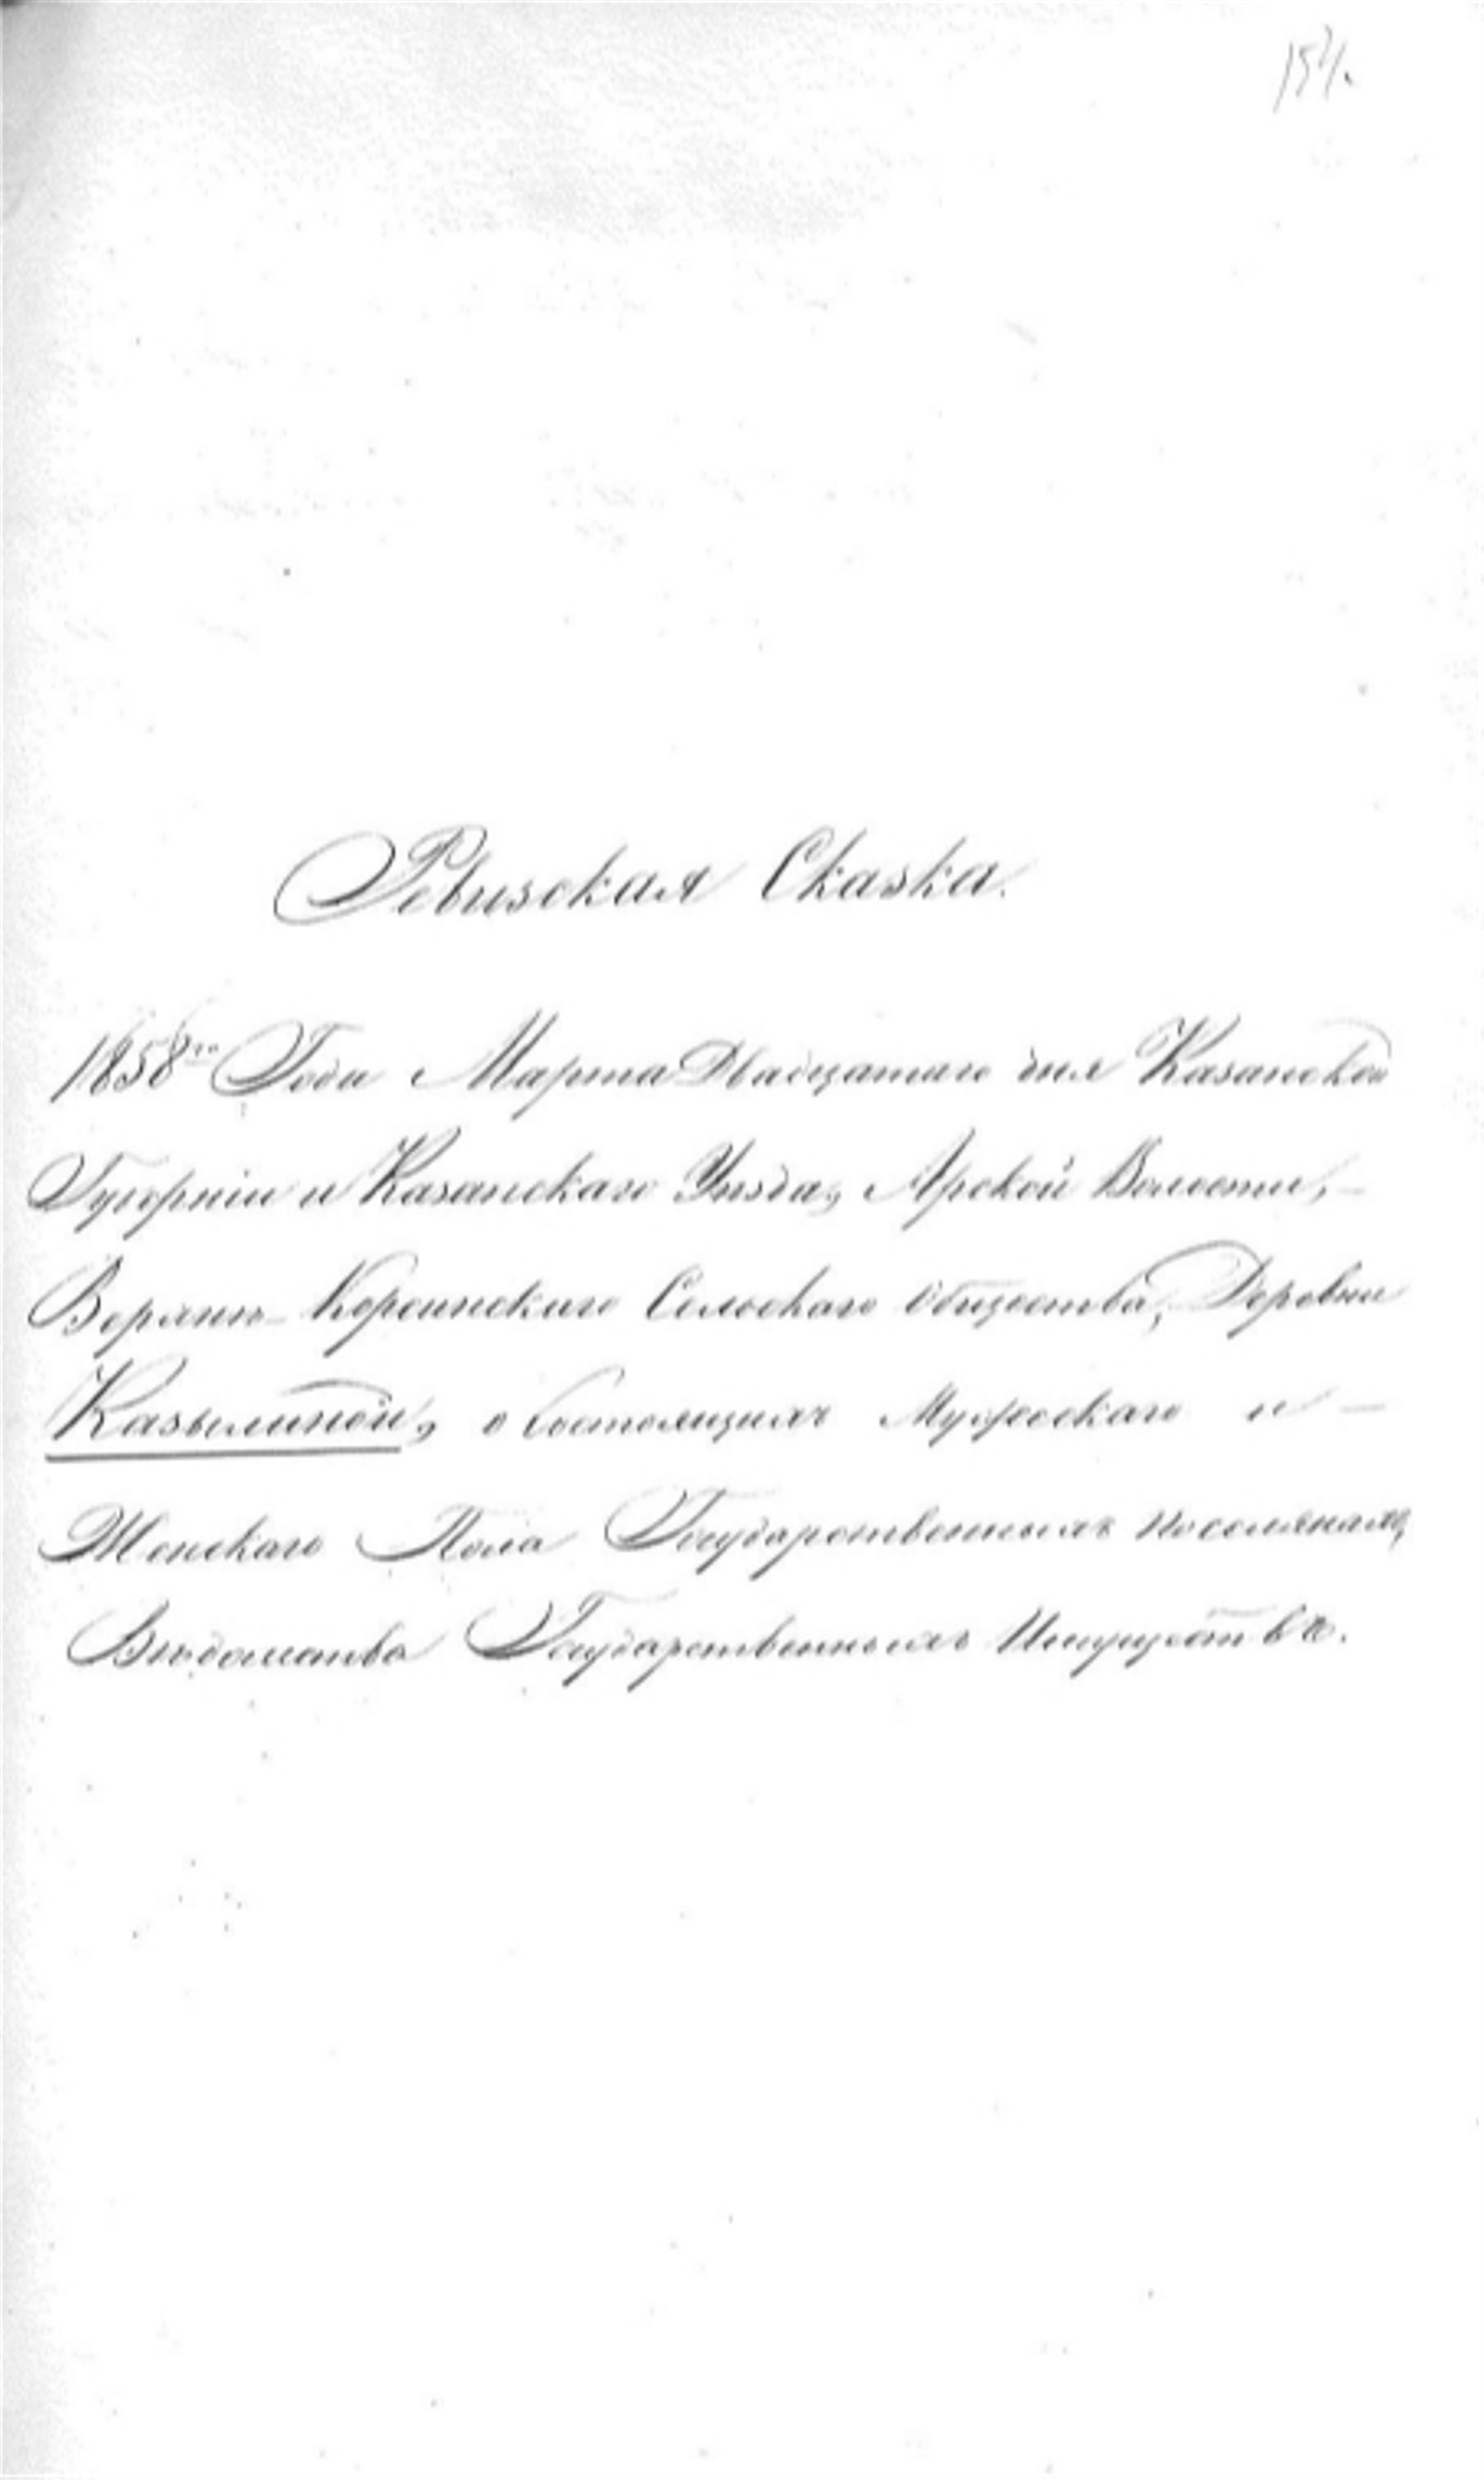 Ревизская Сказка.
1858го Года Марта Двадцатаго дня Казанской
Губерніи и Казанскаго Уѣзда, Арской Волости, —
Верхне-Корсинскаго Сельскаго Общества, Деревни
Казылиной, о состоящихъ Мужескаго и —
Женскаго Пола Государственныхъ поселянахъ,
Вѣдомства Государственныхъ Имуществъ.